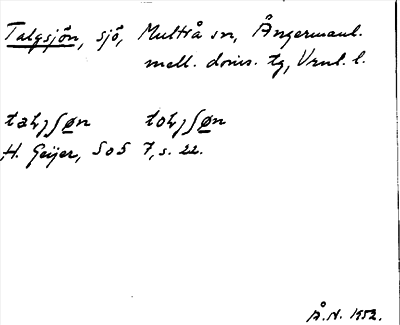 Talgsjön, sjö, Multrå sn, Ångermanl.
mell. doms. tg, Vrnl. l.
H. Geijer, SoS 7, s. 22.
Å.N. 1952.